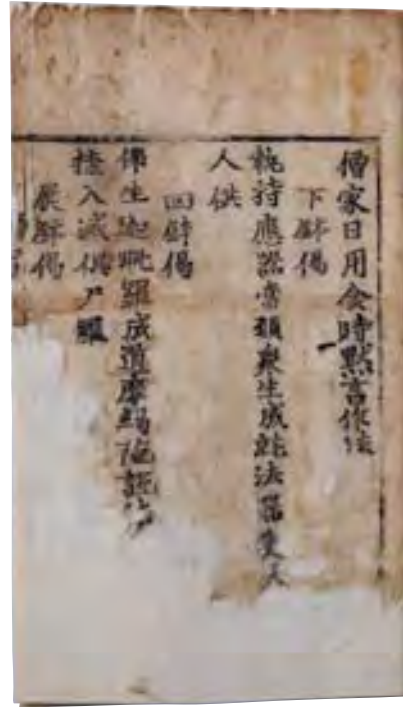 僧家日用食時默言作法
下鉢偈
執持應器當願衆生成就法器受天
人供
回鉢偈
佛生迦毗羅成道摩竭陁說法
㮈入滅俱尸羅
展鉢偈